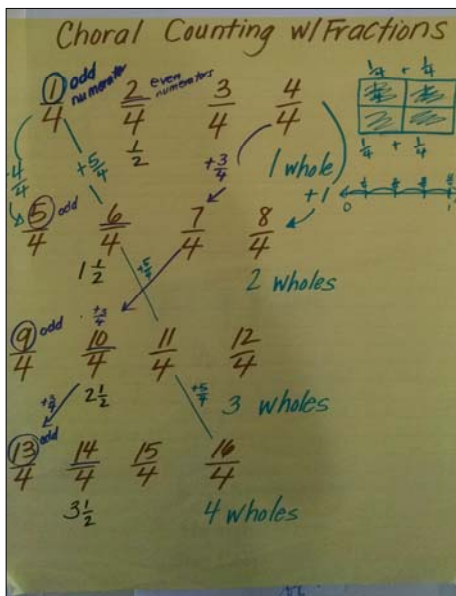 Choral Counting w/Fractions
1/4 odd numerator 2/4 even numerators 3/4 4/4 1/4 + 1/4
1/2
1/4 + 1/4
4/4 +5/4 +3/4 1 whole +1
0 1
5/4 odd 6/4 7/4 8/4
1 1/2 +5/4 2 wholes
+3/4
9/4 odd 10/4 11/4 12/4
+3/4 2 1/2 +5/4 3 wholes
13/4 odd 14/4 15/4 16/4
3 1/2 4 wholes